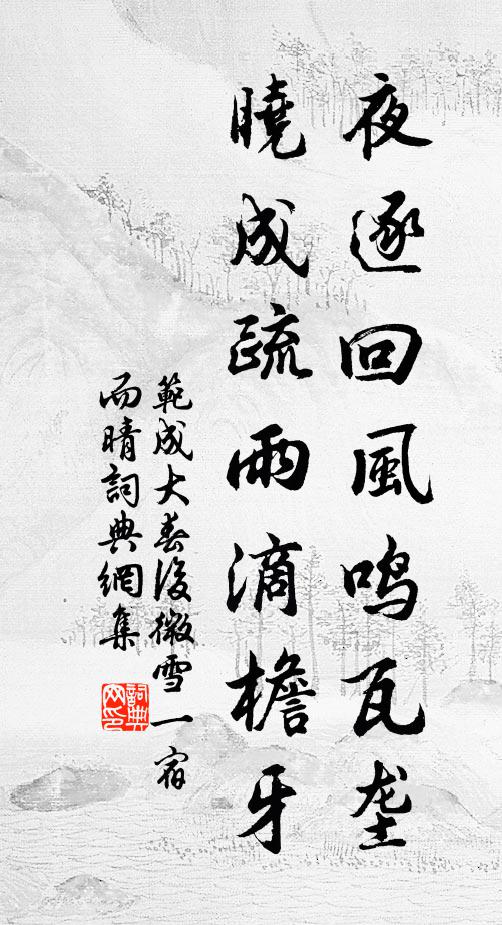 夜逐回風鸣瓦垄
曉成疏雨滴檐牙
範成大春後微雪一宿
而晴詞典網集
詞典网印